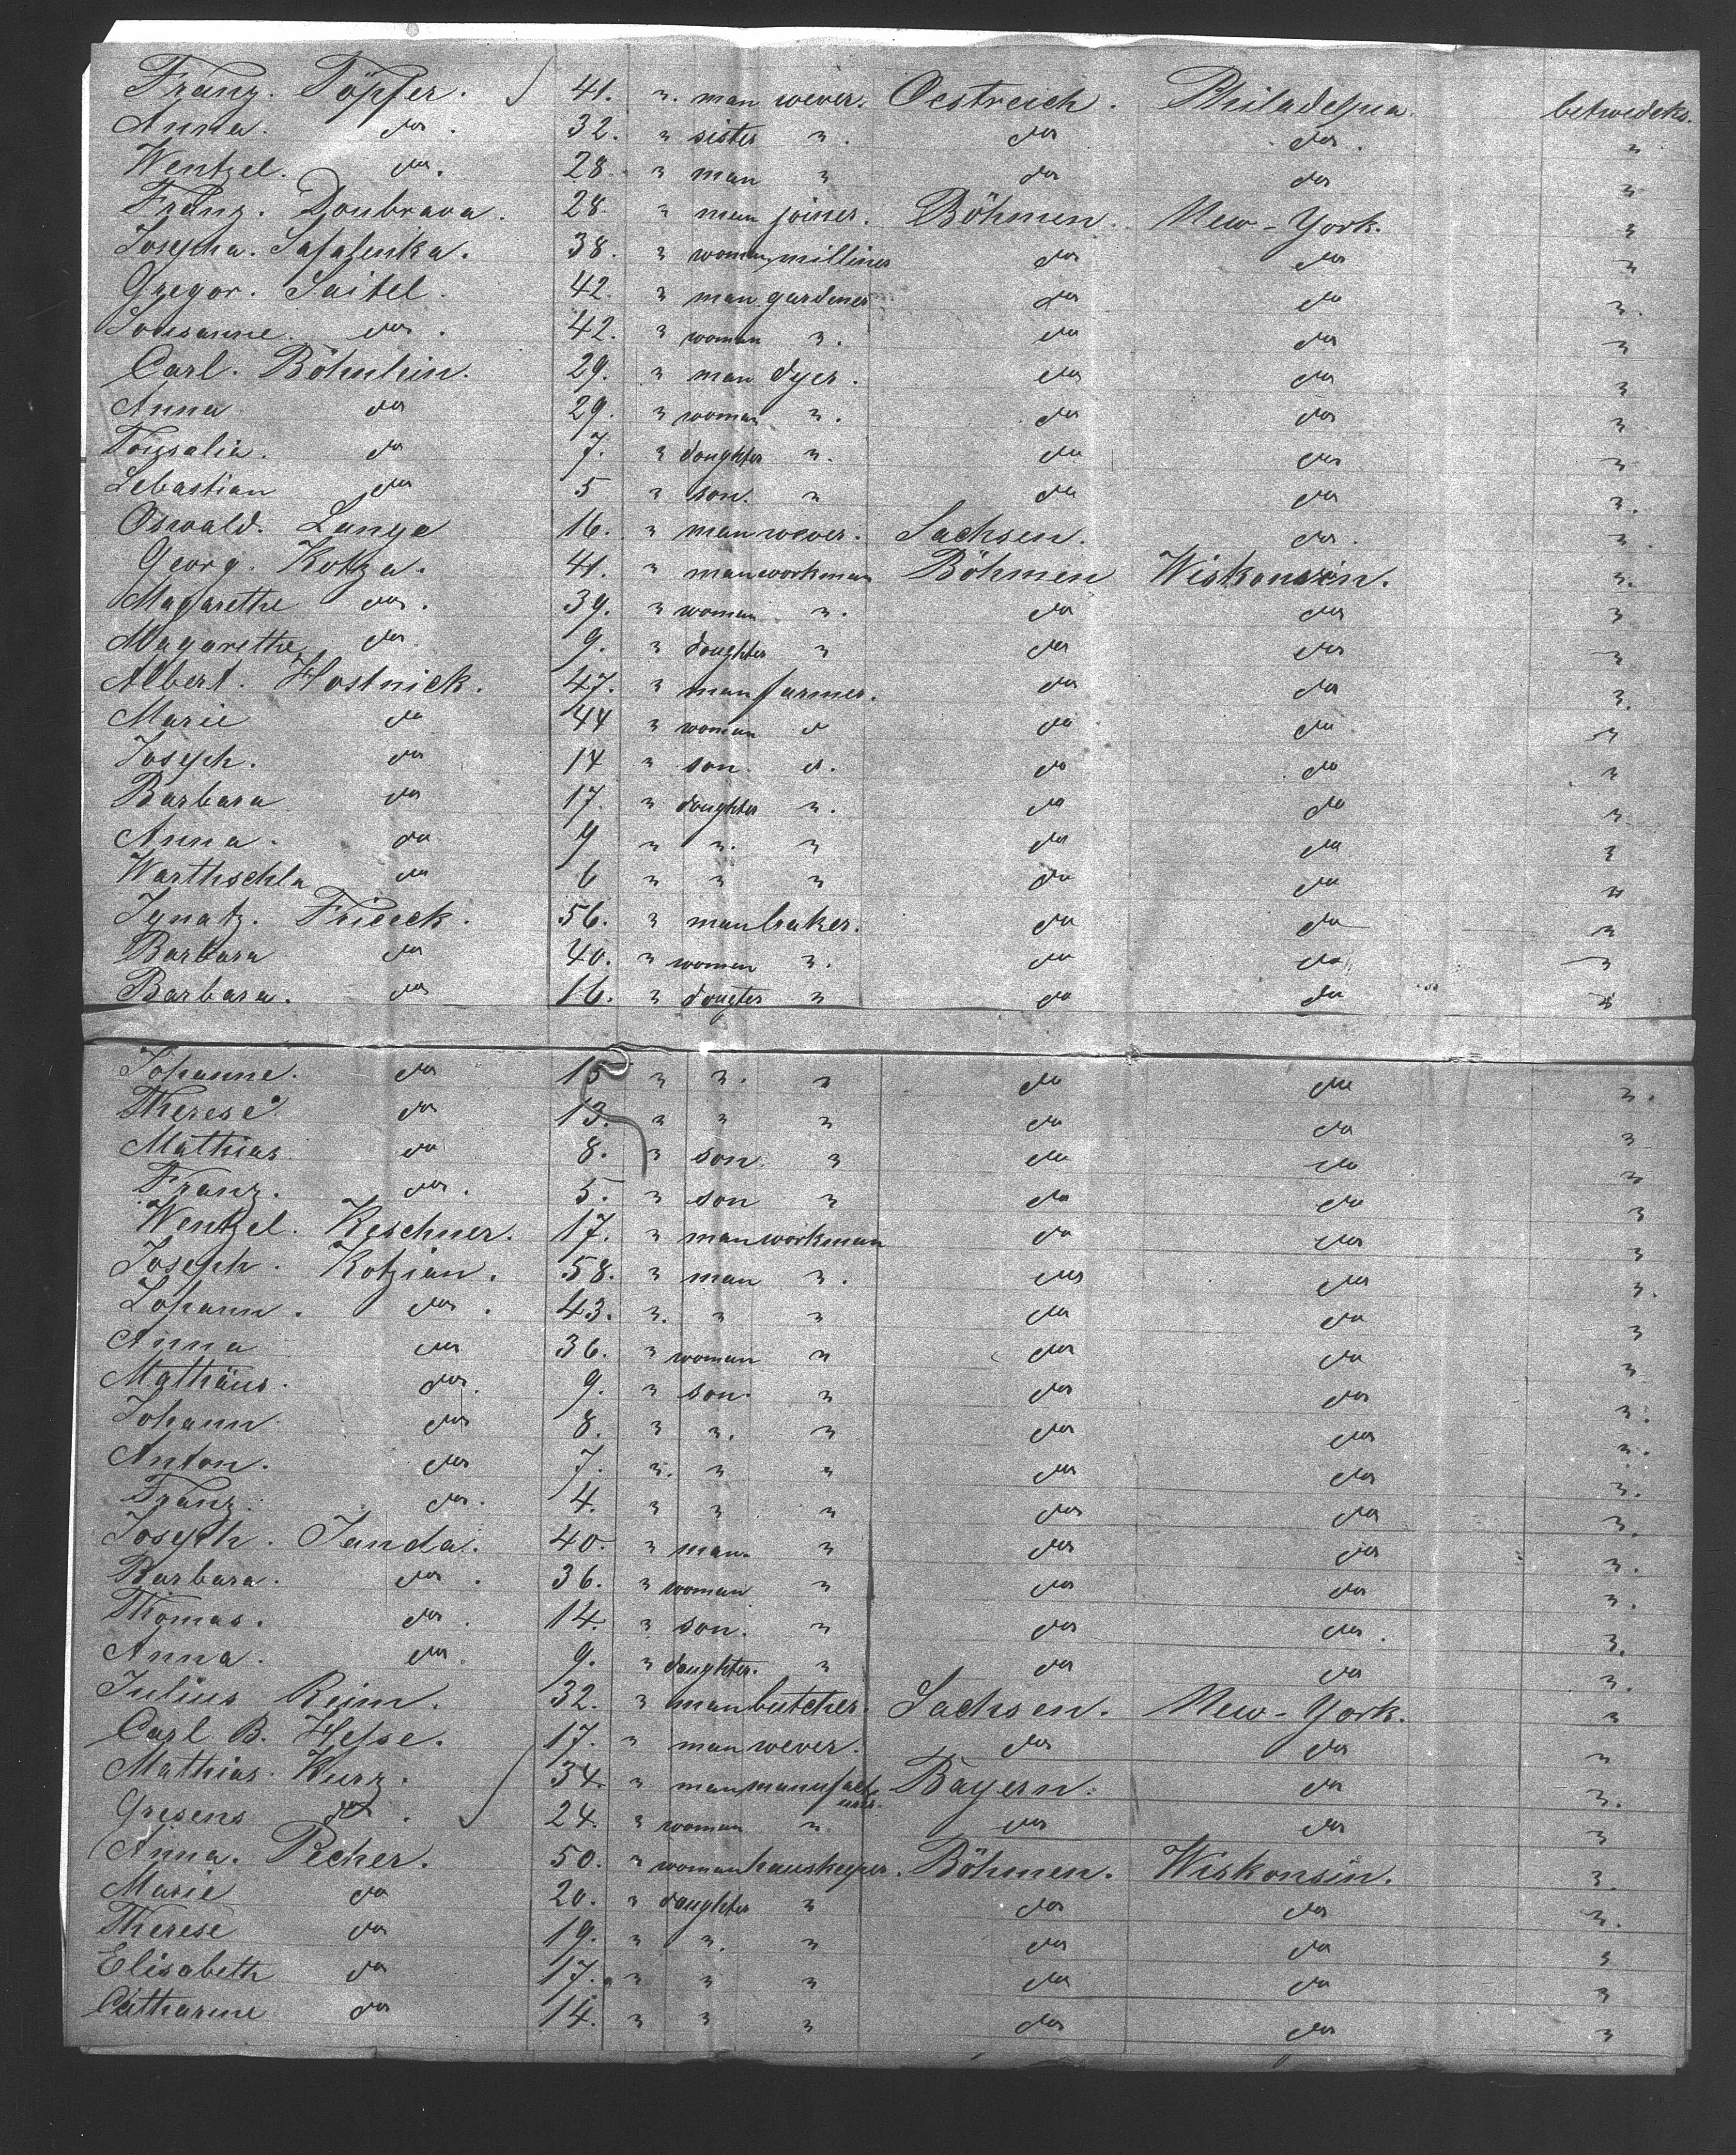 Franz. Töpfer. 41. " man wever. Oestreich. Philadelpia. betwedeks.
Anna. do. 32. " sister ". do do. "
Wentzel. do. 28. " man " do do "
Franz. Doubrava. 28. " man joiner. Böhmen. New-York. "
Josepha. Safalenka. 38. " woman milliner do do "
Gregor. Saitel. 42. " man gardener do do "
Sousanne. do. 42. " woman ". do do "
Carl. Böhnlein. 29. " man dyer. do do "
Anna do 29. " woman ". do do "
Tousalia. do 7. " doughter ". do do "
Sebastian do 5 " son. " do do "
Oswald. Lange 16. " man wever. Sachsen. do. "
Georg. Kotza. 41. " man workman Böhmen Wiskonsin. "
Magarethe do. 39. " woman ". do do "
Magarethe do 9. " doughter " do do "
Albert. Hostnick. 47. " man farmer. do do "
Marie do 44 " woman d do do "
Joseph. do 14 " son. d. do do "
Barbara do 17. " doughter ". do do "
Anna. do 9 " ". " do do "
Warthschla do 6 " " " do do "
Ignatz. Frieck. 56. " man baker. do do "
Barbara do 40. " women ". do do "
Barbara. do 16. " dougter " do do "
Johanne. do 15 " ". " do do ".
Therese do 13. " " " do do "
Mathias do 8. " son. " do do "
Franz. do. 5. " son " do do "
Wentzel. Keschner. 17. " man workman do do "
Joseph. Kotzian. 58. " man ". do do ".
Johann. do. 43. ". " " do do "
Anna do 36. " woman " do do "
Mathäus. do. 9. " son. " do do ".
Johann do 8. " ". " do do ".
Anton. do 7. ". " " do do ".
Franz. do. 4. " " " do do ".
Joseph. Janda. 40. " man. " do do ".
Barbara. do. 36. " woman " do do ".
Thomas. do. 14. " son. " do do. ".
Anna. do. 9. " daughter. " do do ".
Julius Reim. 32. " man butcher. Sachsen. New-York. "
Carl B. Hesse. 17. " man wever. do do "
Mathias. Kurz. 34. " man manufact Bayern. do ".
urer.
Gresens do. 24. " woman " do do "
Anna. Pecher. 50. " woman hauskeeper. Böhmen. Wiskonsin. ".
Marie do 20. " daughter " do do ".
Therese do 19. " ". " do do "
Elisabeth do 17. " " " do do "
Catharine do 14. " " " do do "